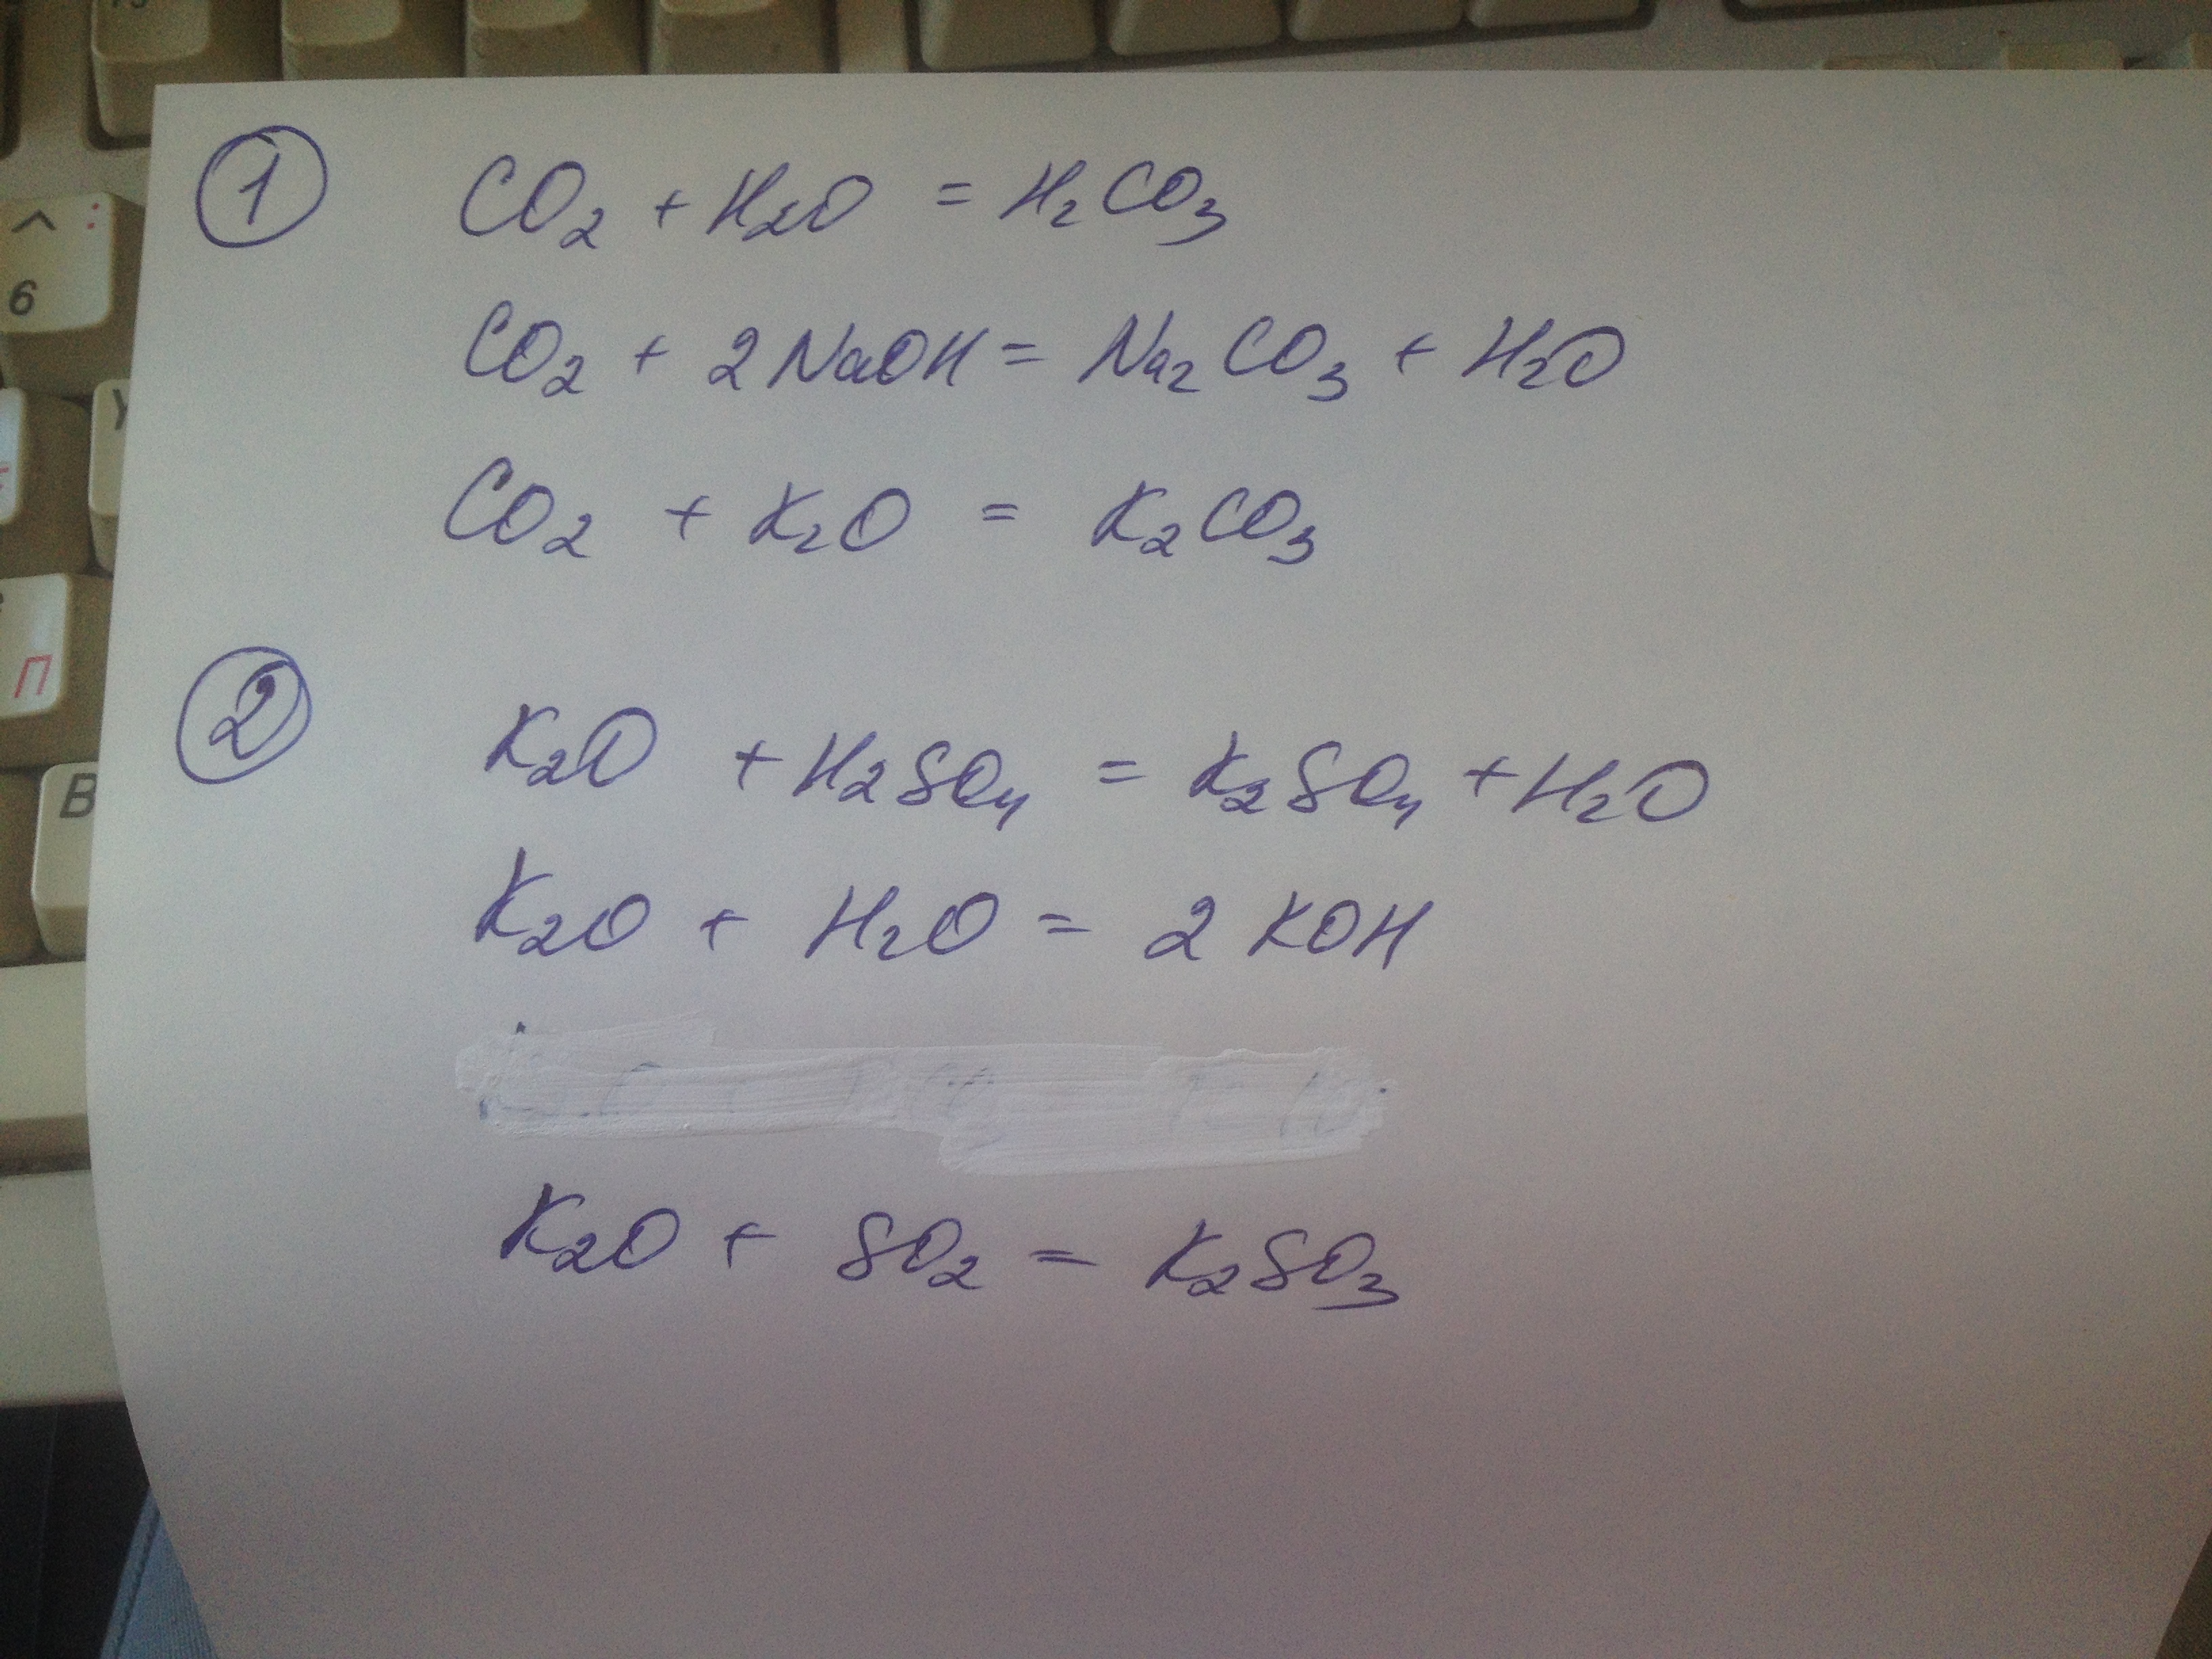 ① CO₂ + H₂O = H₂CO₃
CO₂ + 2NaOH = Na₂CO₃ + H₂O
CO₂ + K₂O = K₂CO₃
② K₂O + H₂SO₄ = K₂SO₄ + H₂O
K₂O + H₂O = 2KOH
K₂O + SO₂ = K₂SO₃
^ :
6
П
B